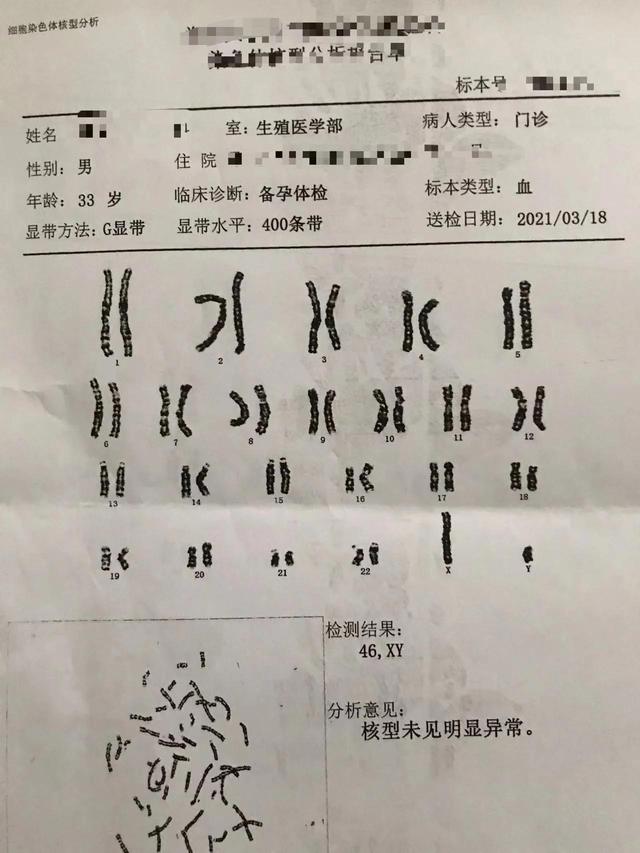 细胞染色体核型分析
染色体核型分析报告单
标本号
姓名 室: 生殖医学部 病人类型: 门诊
性别: 男 住 院 号
年龄: 33 岁 临床诊断: 备孕体检 标本类型: 血
显带方法: G显带 显带水平: 400条带 送检日期: 2021/03/18
1 2 3 4 5
6 7 8 9 10 11 12
13 14 15 16 17 18
19 20 21 22 X Y
检测结果:
46,XY
分析意见:
核型未见明显异常。